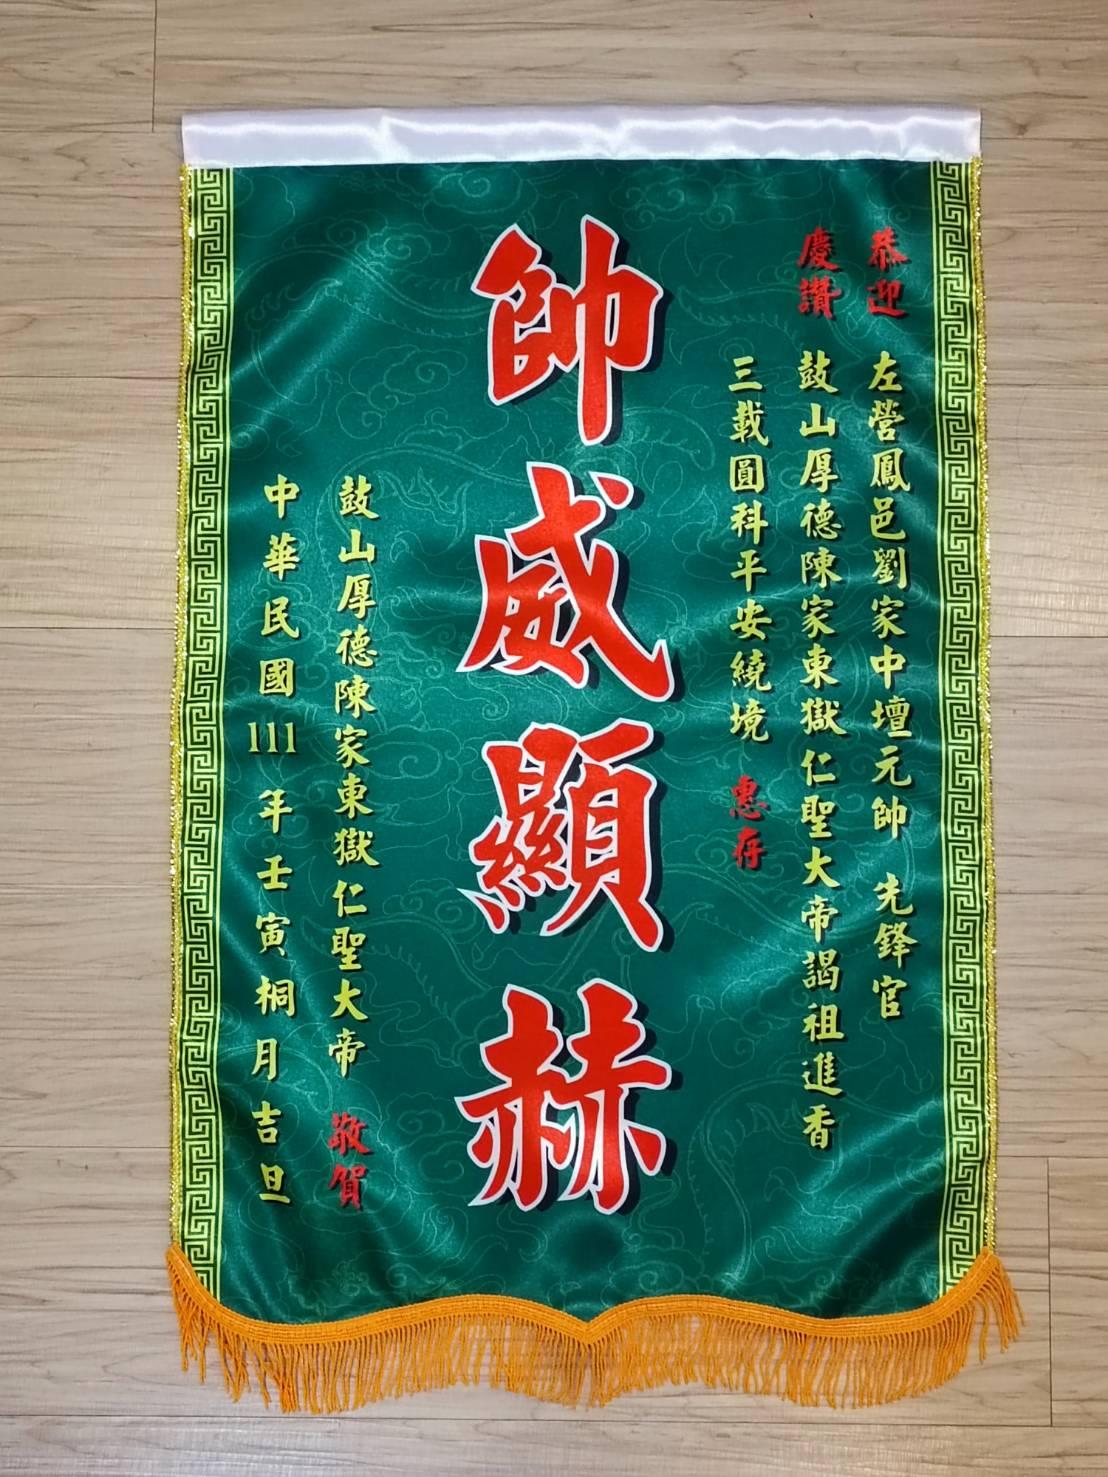 恭迎 左營鳳邑劉家中壇元帥 先鋒官
慶讚 鼓山厚德陳家東獄仁聖大帝謁祖進香
三載圓科平安繞境 惠存
帥威顯赫
鼓山厚德陳家東獄仁聖大帝 敬賀
中華民國111年壬寅桐月吉旦